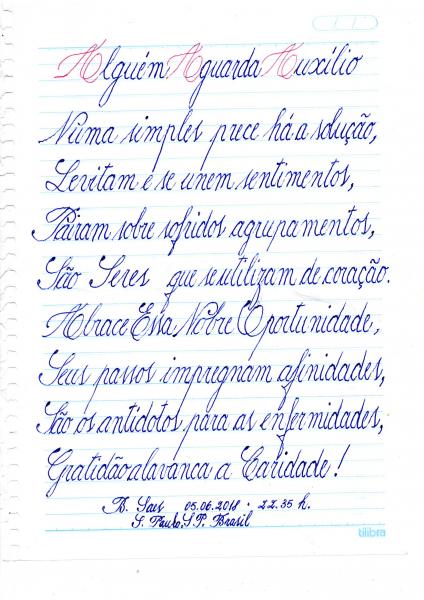 Alguém Aguarda Auxílio
Numa simples prece há a solução,
Levitam e se unem sentimentos,
Pairam sobre sofridos agrupamentos,
São Seres que se utilizam de coração.
Abrace Essa Nobre Oportunidade,
Seus passos impregnam afinidades,
São os antídotos para as enfermidades,
Gratidão alavanca a Caridade!
B. Saes 05.06.2018 - 22.35 h.
S. Paulo, S.P. Brasil
tilibra